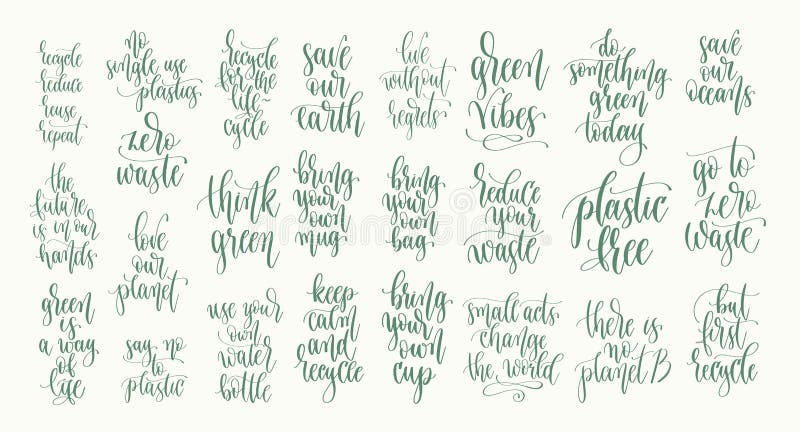 recycle
reduce
reuse
repeat
the
future
is in our
hands
green
is
a way
of
life
no
single use
plastics
zero
waste
love
our
planet
say no
to
plastic
recycle
for the
life-
cycle
think
green
use your
own
water
bottle
save
our
earth
bring
your
own
mug
keep
calm
and
recycle
live
without
regrets
bring
your
own
bag
bring
your
own
cup
green
vibes
reduce
your
waste
small acts
change
the world
do
something
green
today
plastic
free
there is
no
planet B
save
our
oceans
go to
zero
waste
but
first
recycle